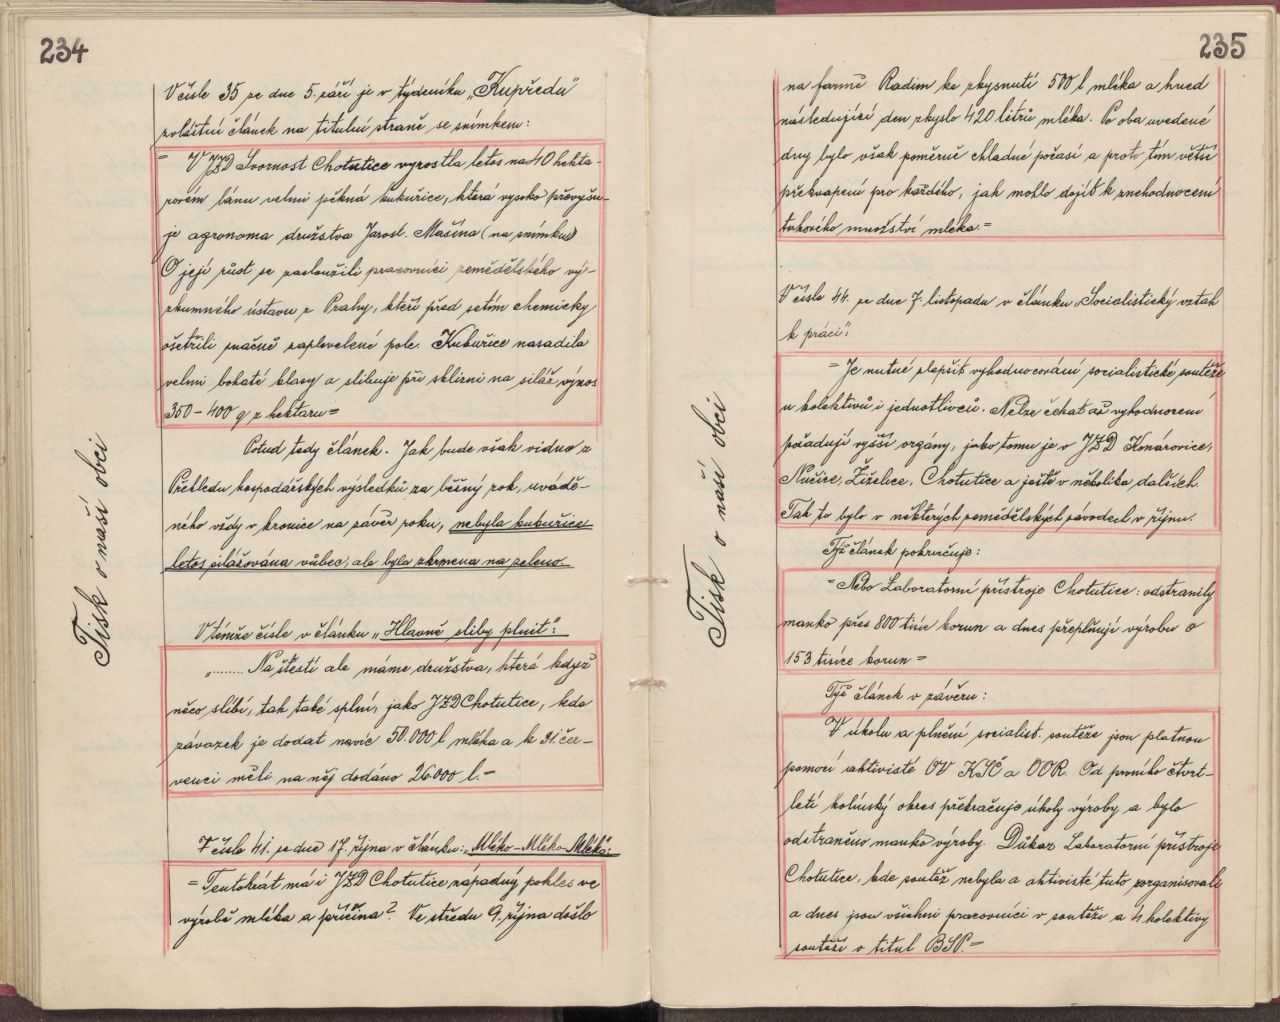 234
V čísle 35 ze dne 5. září je v týdeníku „Kupředu"
zvláštní článek na titulní straně se snímkem:
= V JZD Svornost Chotutice vyrostla letos na 40 hekta-
rovém lánu velmi pěkná kukuřice, která vysoko převyšu-
je agronoma družstva Jarosl. Mašína (na snímku)
O její růst se zasloužili pracovníci zemědělského vý-
zkumného ústavu z Prahy, kteří před setím chemicky
ošetřili značně zaplevelené pole. Kukuřice nasadila
velmi bohaté klasy a slibuje při sklizni na siláž, výnos
350-400 q z hektaru =
Potud tedy článek. Jak bude však vidno z
Přehledu hospodářských výsledků za běžný rok, uvádě-
ného vždy v kronice na závěr roku, nebyla kukuřice
letos silážována vůbec, ale byla zkrmena na zeleno.
V témže čísle v článku „Hlavně sliby plnit":
„......... Na štěstí ale máme družstva, která když
něco slíbí, tak také splní, jako JZD Chotutice, kde
závazek je dodat navíc 50.000 l mléka a k 31. čer-
venci měli na něj dodáno 26.000 l. =
V čísle 41. ze dne 17. října v článku: „Mléko-Mléko-Mléko":
= Tentokrát má i JZD Chotutice nápadný pokles ve
výrobě mléka a příčina? Ve středu 9. října došlo
Tisk o naší obci
235
na farmě Radim ke zkysnutí 500 l mléka a hned
následující den zkyslo 420 litrů mléka. Po oba uvedené
dny bylo však poměrně chladné počasí a proto tím větší
překvapení pro každého, jak mohlo dojít k znehodnocení
takového množství mléka. =
V čísle 44. ze dne 7. listopadu v článku „Socialistický vztah
k práci":
= Je nutné zlepšit vyhodnocování socialistické soutěže
u kolektivů i jednotlivců. Nelze čekat až vyhodnocení
požadují vyšší orgány, jako tomu je v JZD Konárovice,
Nučice, Žiželice, Chotutice a ještě v několika dalších.
Tak to bylo v některých zemědělských závodech v říjnu.
Týž článek pokračuje:
= Nebo Laboratorní přístroje Chotutice: odstranily
manko přes 800 tisíc korun a dnes přeplňují výrobu o
153 tisíce korun =
Týž článek v závěru:
V úkolu a plnění socialist. soutěže jsou platnou
pomocí aktivisté OV KSČ a OOR. Od prvního čtvrt-
letí kolínský okres překračuje úkoly výroby a bylo
odstraněno manko výroby. Důkaz Laboratorní přístroje
Chotutice, kde soutěž nebyla a aktivisté tuto zorganisovali
a dnes jsou všichni pracovníci v soutěži a 4 kolektivy
soutěží o titul BSP. =
Tisk o naší obci